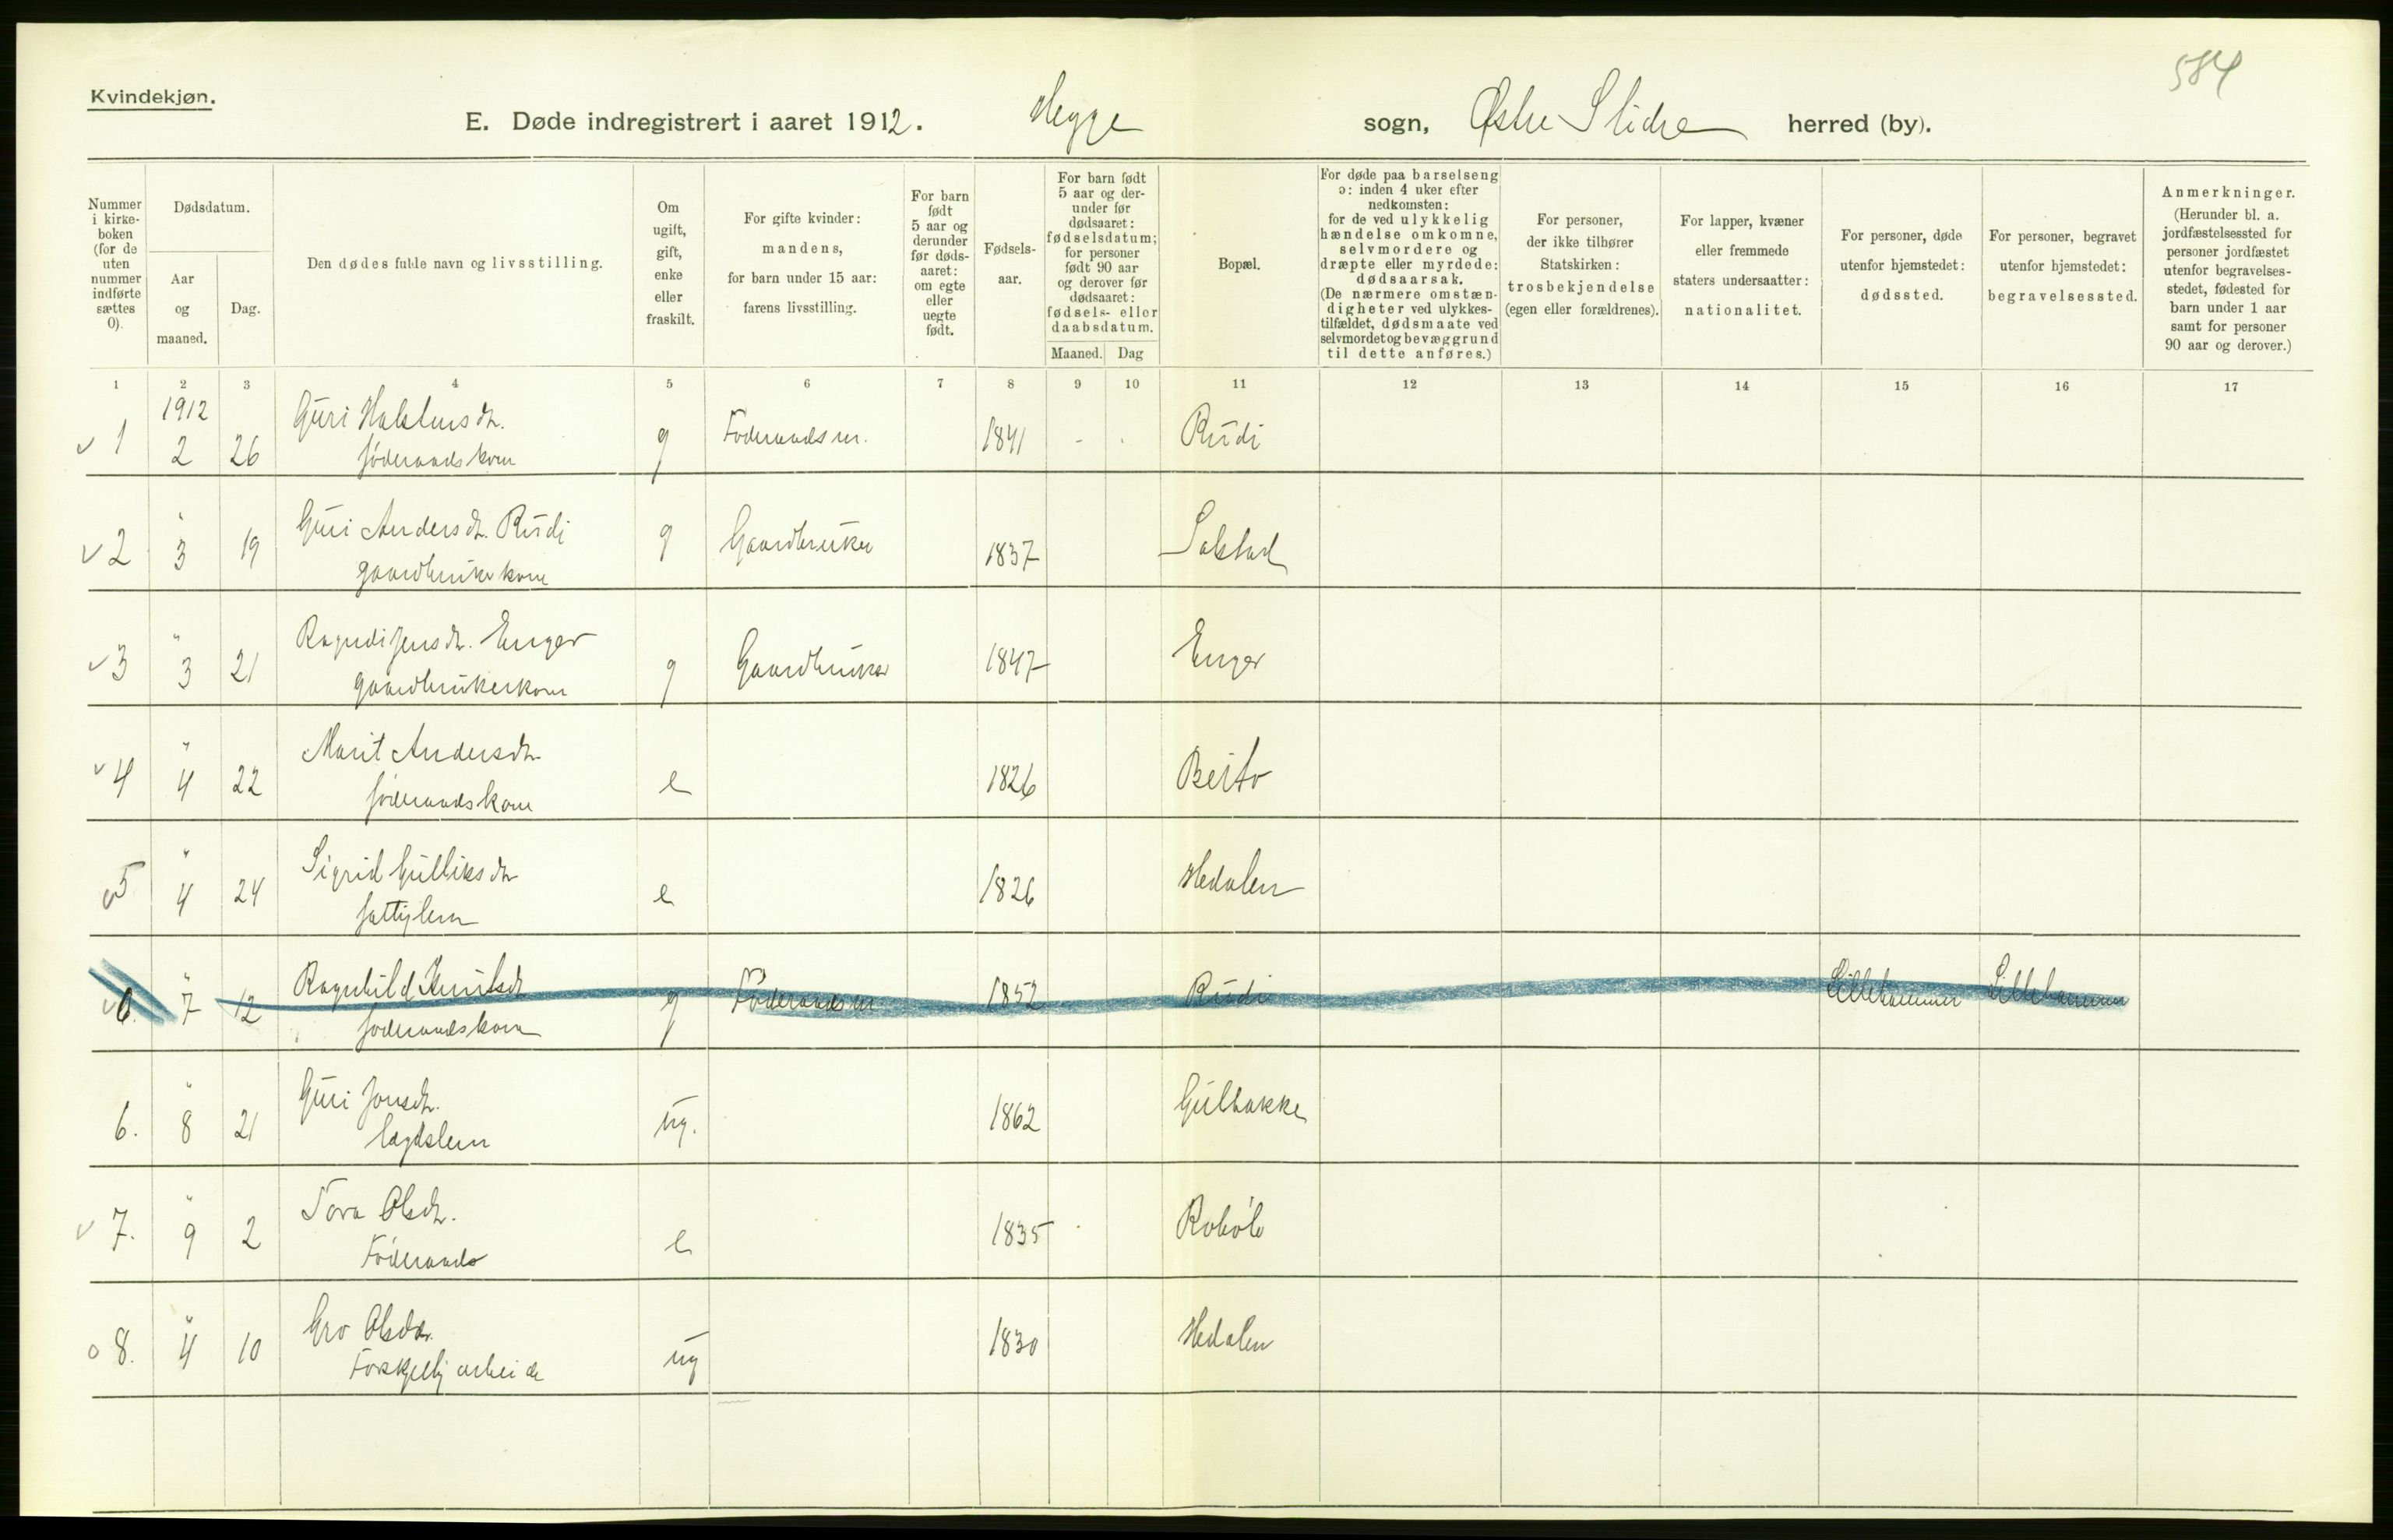 584
Kvindekjøn.
E. Døde indregistrert i aaret 1912. Hegge sogn, Østre Slidre herred (by).
Nummer i kirke-boken (for de uten nummer indførte sættes 0).
Dødsdatum.
Aar og maaned.
Dag.
Den dødes fulde navn og livsstilling.
Om ugift, gift, enke eller fraskilt.
For gifte kvinder: mandens, for barn under 15 aar: farens livsstilling.
For barn født 5 aar og derunder før døds-aaret: om egte eller uegte født.
Fødsels-aar.
For barn født 5 aar og der-under før dødsaaret: fødselsdatum; for personer født 90 aar og derover før dødsaaret: fødsels- eller daabsdatum.
Maaned. Dag
Bopæl.
For døde paa barselseng ɔ: inden 4 uker efter nedkomsten: for de ved ulykkelig hændelse omkomne, selvmordere og dræpte eller myrdede: dødsaarsak. (De nærmere omstæn-digheter ved ulykkes-tilfældet, dødsmaate ved selvmordet og bevæggrund til dette anføres.)
For personer, der ikke tilhører Statskirken: trosbekjendelse (egen eller forældrenes).
For lapper, kvæner eller fremmede staters undersaatter: nationalitet.
For personer, døde utenfor hjemstedet: dødssted.
For personer, begravet utenfor hjemstedet: begravelsessted.
Anmerkninger. (Herunder bl. a. jordfæstelsessted for personer jordfæstet utenfor begravelses-stedet, fødested for barn under 1 aar samt for personer 90 aar og derover.)
1 2 3 4 5 6 7 8 9 10 11 12 13 14 15 16 17
1912
Guri Halstensdt.
v 1 2 26 føderaadskone g Føderaadsm. 1841 - . Rudi
" Guri Andersdt. Rudi
v 2 3 19 gaardbrukerkone g Gaardbruker 1837 Salstad
" Ragndi Jensdt. Enger
v 3 3 21 gaardbrukerkone g Gaardbruker 1847 Enger
" Marit Andersdt.
v 4 4 22 føderaadskone e 1826 Beito
" Sigrid Gulliksdt
v 5 4 24 fattiglem e 1826 Hedalen
" Ragnhild Knutsdt
v 6. 7 12 føderaadskone g Føderaadsm 1852 Rudi Lillehammer Lillehammer
" Guri Jonsdt.
6. 8 21 lægdslem ug. 1862 Gulbakke
" Tora Olsdt.
v 7. 9 2 Føderaads e 1835 Robøle
" Gro Olsdtr.
o 8. 4 10 Forskjellig arbeide ug 1830 Hedalen